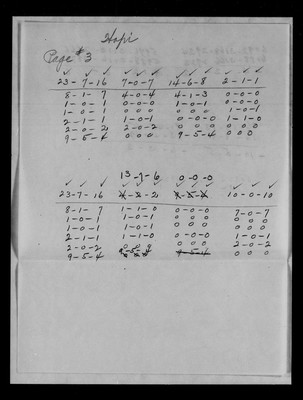 Hopi
Page #3
✓ ✓ ✓ ✓ ✓ ✓ ✓ ✓ ✓
23-7-16 7-0-7 14-6-8 2-1-1
8-1-7 4-0-4 4-1-3 0-0-0
1-0-1 0-0-0 1-0-1 0-0-0
1-0-1 0 0 0 1-0-1
2-1-1 1-0-1 0-0-0 1-1-0
2-0-2 2-0-2 0 0 0 0 0 0
9-5-4 0 0 0 9-5-4 0 0 0
13-7-6 0-0-0
23-7-16 10-0-10
8-1-7 1-1-0 0-0-0 7-0-7
1-0-1 1-0-1 0 0 0 0 0 0
1-0-1 1-0-1 0 0 0 0 0 0
2-1-1 1-1-0 0-0-0 1-0-1
2-0-2 0 0 0 0 0 0 2-0-2
9-5-4 9-5-4 9-5-4 0 0 0